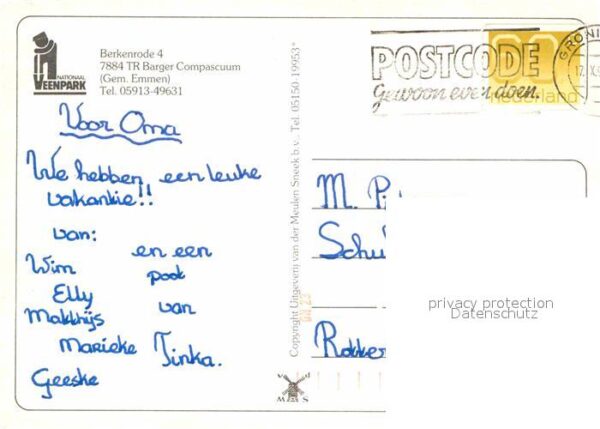 NATIONAAL
VEENPARK
Berkenrode 4
7884 TR Barger Compascuum
(Gem. Emmen)
Tel. 05913-49631
Voor Oma
We hebben een leuke
vakantie!!
van:
Wim
Elly
Matthijs
Marieke
Geeske
en een
poot
van
Tinka.
Copyright Uitgeverij van der Meulen Sneek b.v. Tel. 05150-19953*
v d
M S
POSTCODE
Gewoon even doen.
nederland
GRONI
17. X
M. P
Schu
Rokker
privacy protection
Datenschutz